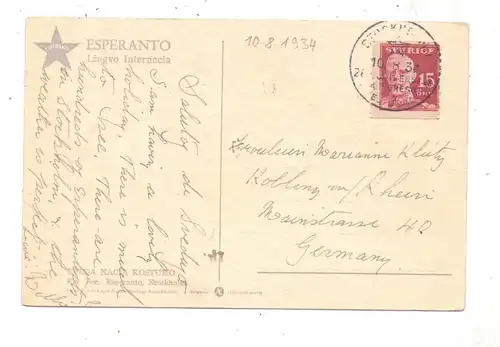 ESPERANTO
Lingvo Internacia
10.8.1934
SVERIGE
15
ÖRE
Salutoj de Svedujo
I am having a lovely
holiday. There is much
to see. There are
hundreds of Esperantists
in Stockholm, & the
weather is perfect.
Love.
Fräulein Marianne Klütz
Koblenz a/Rhein
Mainstrasse 40
Germany
NAGA KOSTUMO
Esperanto, Stockholm